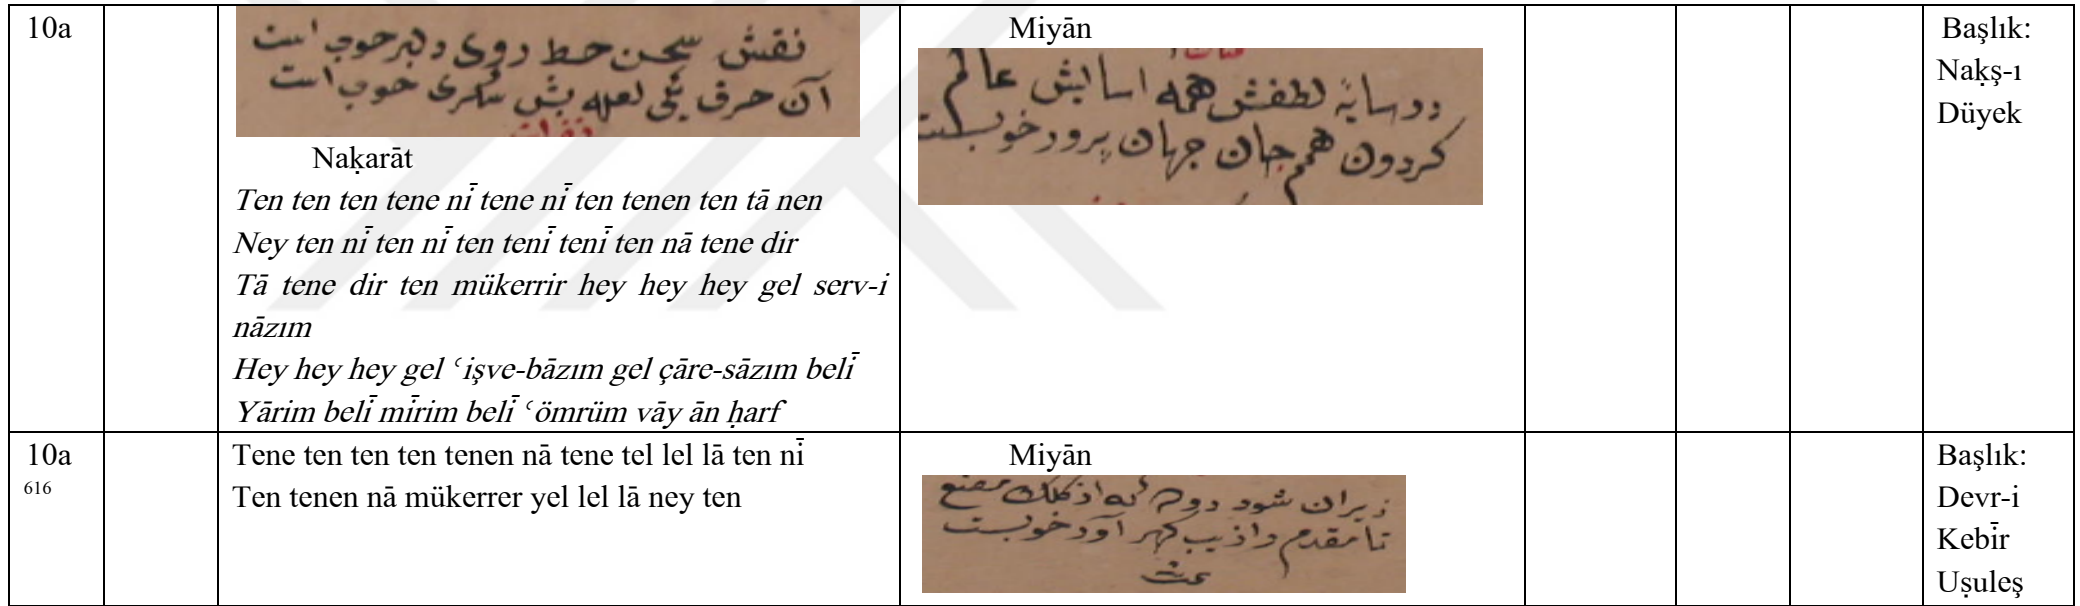 10a
نقش سخن خط روی دلبر خوب است
آن حرف یکی لعله بش شکری خوب است
Naḳarāt
Ten ten ten tene nī tene nī ten tenen ten tā nen
Ney ten nī ten nī ten tenī tenī ten nā tene dir
Tā tene dir ten mükerrir hey hey hey gel serv-i
nāzım
Hey hey hey gel ʿişve-bāzım gel çāre-sāzım belī
Yārim belī mīrim belī ʿömrüm vāy ān ḥarf
Miyān
در سایهٔ لطفش همه اسایش عالم
کردون همم جان جهان پرور خوبست
Başlık:
Naḳş-ı
Düyek
10a
616
Tene ten ten ten tenen nā tene tel lel lā ten nī
Ten tenen nā mükerrer yel lel lā ney ten
Miyān
شود
تا مقدم خوبست
Başlık:
Devr-i
Kebīr
Uṣuleş